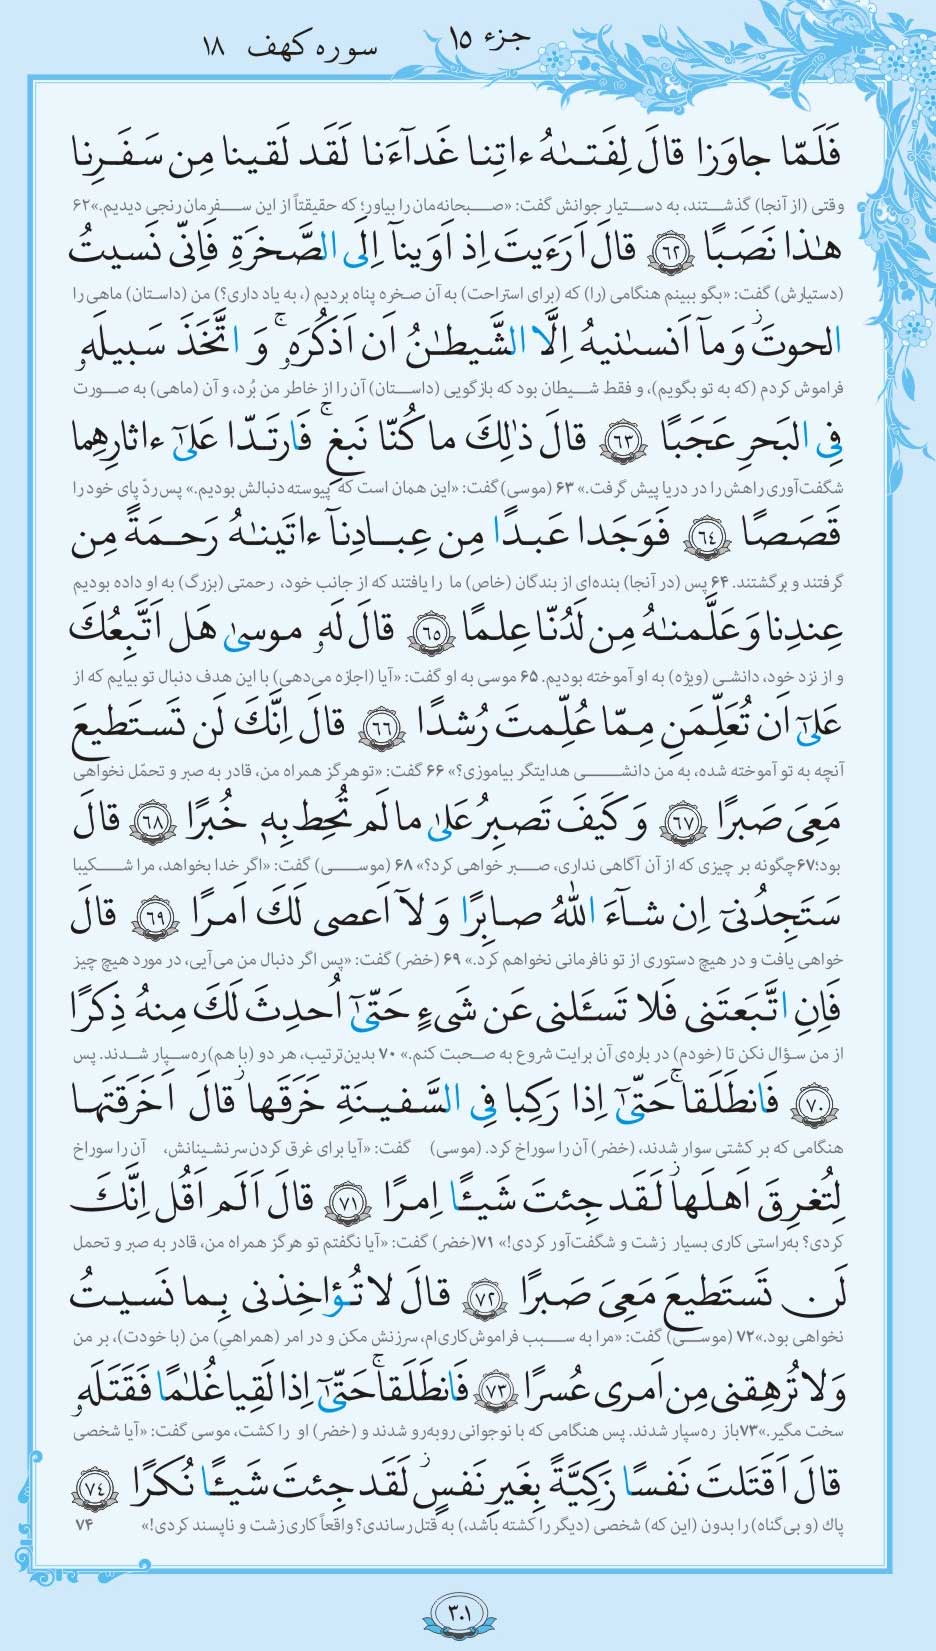 جزء ۱۵
سوره کهف ۱۸
فَلَمّا جاوَزا قالَ لِفَتىٰهُ ءاتِنا غَدآءَنا لَقَد لَقينا مِن سَفَرِنا
وقتی (از آنجا) گذشتند، به دستیار جوانش گفت: «صبحانه‌مان را بیاور؛ که حقیقتاً از این سفرمان رنجی دیدیم.»۶۲
هٰذا نَصَبًا ﴿٦٢﴾ قالَ اَرَءَيتَ اِذ اَوَينآ اِلَى الصَّخرَةِ فَاِنّى نَسيتُ
(دستیارش) گفت: «بگو ببینم هنگامی (را) که (برای استراحت) به آن صخره پناه بردیم (، به یاد داری؟) من (داستان) ماهی را
الحوتَ ۫ وَمآ اَنسىٰنيهُ اِلَّا الشَّيطٰنُ اَن اَذكُرَهۥ ۚ وَ اتَّخَذَ سَبيلَهۥ
فراموش کردم (که به تو بگویم)، و فقط شیطان بود که بازگویی (داستان) آن را از خاطر من بُرد، و آن (ماهی) به صورت
فِى البَحرِ عَجَبًا ﴿٦٣﴾ قالَ ذٰلِكَ ما كُنّا نَبغِ ۚ فَارتَدّا عَلىٰٓ ءاثارِهِما
شگفت‌آوری راهش را در دریا پیش گرفت.» ۶۳ (موسی) گفت: «این همان است که پیوسته دنبالش بودیم.» پس ردّ پای خود را
قَصَصًا ﴿٦٤﴾ فَوَجَدا عَبدًا مِن عِبادِنآ ءاتَينٰهُ رَحمَةً مِن
گرفتند و برگشتند. ۶۴ پس (در آنجا) بنده‌ای از بندگان (خاص) ما را یافتند که از جانب خود، رحمتی (بزرگ) به او داده بودیم
عِندِنا وَ عَلَّمنٰهُ مِن لَدُنّا عِلمًا ﴿٦٥﴾ قالَ لَهۥ موسىٰ هَل اَتَّبِعُكَ
و از نزد خود، دانشی (ویژه) به او آموخته بودیم. ۶۵ موسی به او گفت: «آیا (اجازه می‌دهی) با این هدف دنبال تو بیایم که از
عَلىٰٓ اَن تُعَلِّمَنِ مِمّا عُلِّمتَ رُشدًا ﴿٦٦﴾ قالَ اِنَّكَ لَن تَستَطيعَ
آنچه به تو آموخته شده، به من دانشی هدایتگر بیاموزی؟» ۶۶ گفت: «تو هرگز همراه من، قادر به صبر و تحمّل نخواهی
مَعِىَ صَبرًا ﴿٦٧﴾ وَ كَيفَ تَصبِرُ عَلىٰ ما لَم تُحِط بِهۦ خُبرًا ﴿٦٨﴾ قالَ
بود؛۶۷چگونه بر چیزی که از آن آگاهی نداری، صبر خواهی کرد؟» ۶۸ (موسی) گفت: «اگر خدا بخواهد، مرا شکیبا
سَتَجِدُنىٓ اِن شآءَ اللهُ صابِرًا وَ لآ اَعصى لَكَ اَمرًا ﴿٦٩﴾ قالَ
خواهی یافت و در هیچ دستوری از تو نافرمانی نخواهم کرد.» ۶۹ (خضر) گفت: «پس اگر دنبال من می‌آیی، در مورد هیچ چیز
فَاِنِ اتَّبَعتَنى فَلا تَسـَٔلنى عَن شَىءٍ حَتّىٰٓ اُحدِثَ لَكَ مِنهُ ذِكرًا
از من سؤال نکن تا (خودم) در باره‌ی آن برایت شروع به صحبت کنم.» ۷۰ بدین‌ترتیب، هر دو (با هم) ره‌سپار شدند. پس
﴿٧٠﴾ فَانطَلَقا ۚ حَتّىٰٓ اِذا رَكِبا فِى السَّفينَةِ خَرَقَها ۫ قالَ اَخَرَقتَها
هنگامی که بر کشتی سوار شدند، (خضر) آن را سوراخ کرد. (موسی) گفت: «آیا برای غرق کردن سرنشینانش، آن را سوراخ
لِتُغرِقَ اَهلَها ۫ لَقَد جِئتَ شَيـًٔا اِمرًا ﴿٧١﴾ قالَ اَلَم اَقُل اِنَّكَ
کردی؟ به‌راستی کاری بسیار زشت و شگفت‌آور کردی!» ۷۱(خضر) گفت: «آیا نگفتم تو هرگز همراه من، قادر به صبر و تحمل
لَن تَستَطيعَ مَعِىَ صَبرًا ﴿٧٢﴾ قالَ لا تُؤاخِذنى بِما نَسيتُ
نخواهی بود.»۷۲ (موسی) گفت: «مرا به سبب فراموش‌کاری‌ام، سرزنش مکن و در امر (همراهیِ) من (با خودت)، بر من
وَ لا تُرهِقنى مِن اَمرى عُسرًا ﴿٧٣﴾ فَانطَلَقا ۚ حَتّىٰٓ اِذا لَقِيا غُلٰمًا فَقَتَلَهۥ
سخت مگیر.»۷۳باز ره‌سپار شدند. پس هنگامی که با نوجوانی روبه‌رو شدند و (خضر) او را کشت، موسی گفت: «آیا شخصی
قالَ اَقَتَلتَ نَفسًا زَكِيَّةً بِغَيرِ نَفسٍ ۫ لَقَد جِئتَ شَيـًٔا نُكرًا ﴿٧٤﴾
پاك (و بی‌گناه) را بدون (این که) شخصی (دیگر را کشته باشد،) به قتل رساندی؟ واقعاً کاری زشت و ناپسند کردی!» ۷۴
۳۰۱